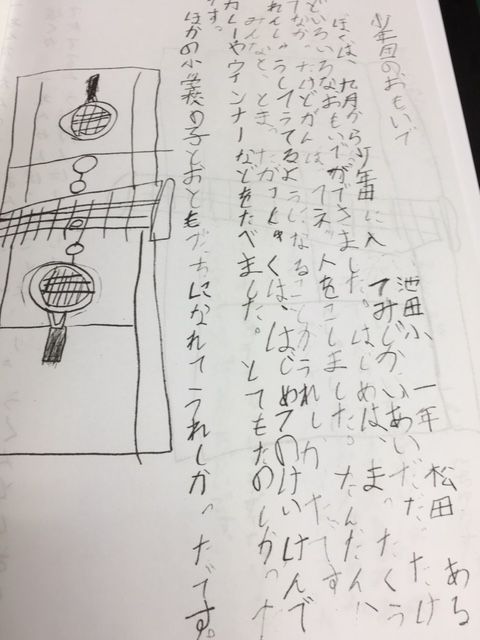 少年団のおもいで
池田小 一年 松田 ある
ぼくは、九月から少年団に入 てみじかいあいだだ。たけ
どいろいろなおもいでができました。はじめは、まったくう
てなかったけどがんばってネットをこしました。だんだん
れんしゅうしてうてるようになることがうれしかったです
みんなと、とまったがっしゅくは、はじめてのけいけんで
カレーやウィンナーなどをたべました。とてもたのしかった
です。
ほかの小学校の子とおともだちになれてうれしかったです。